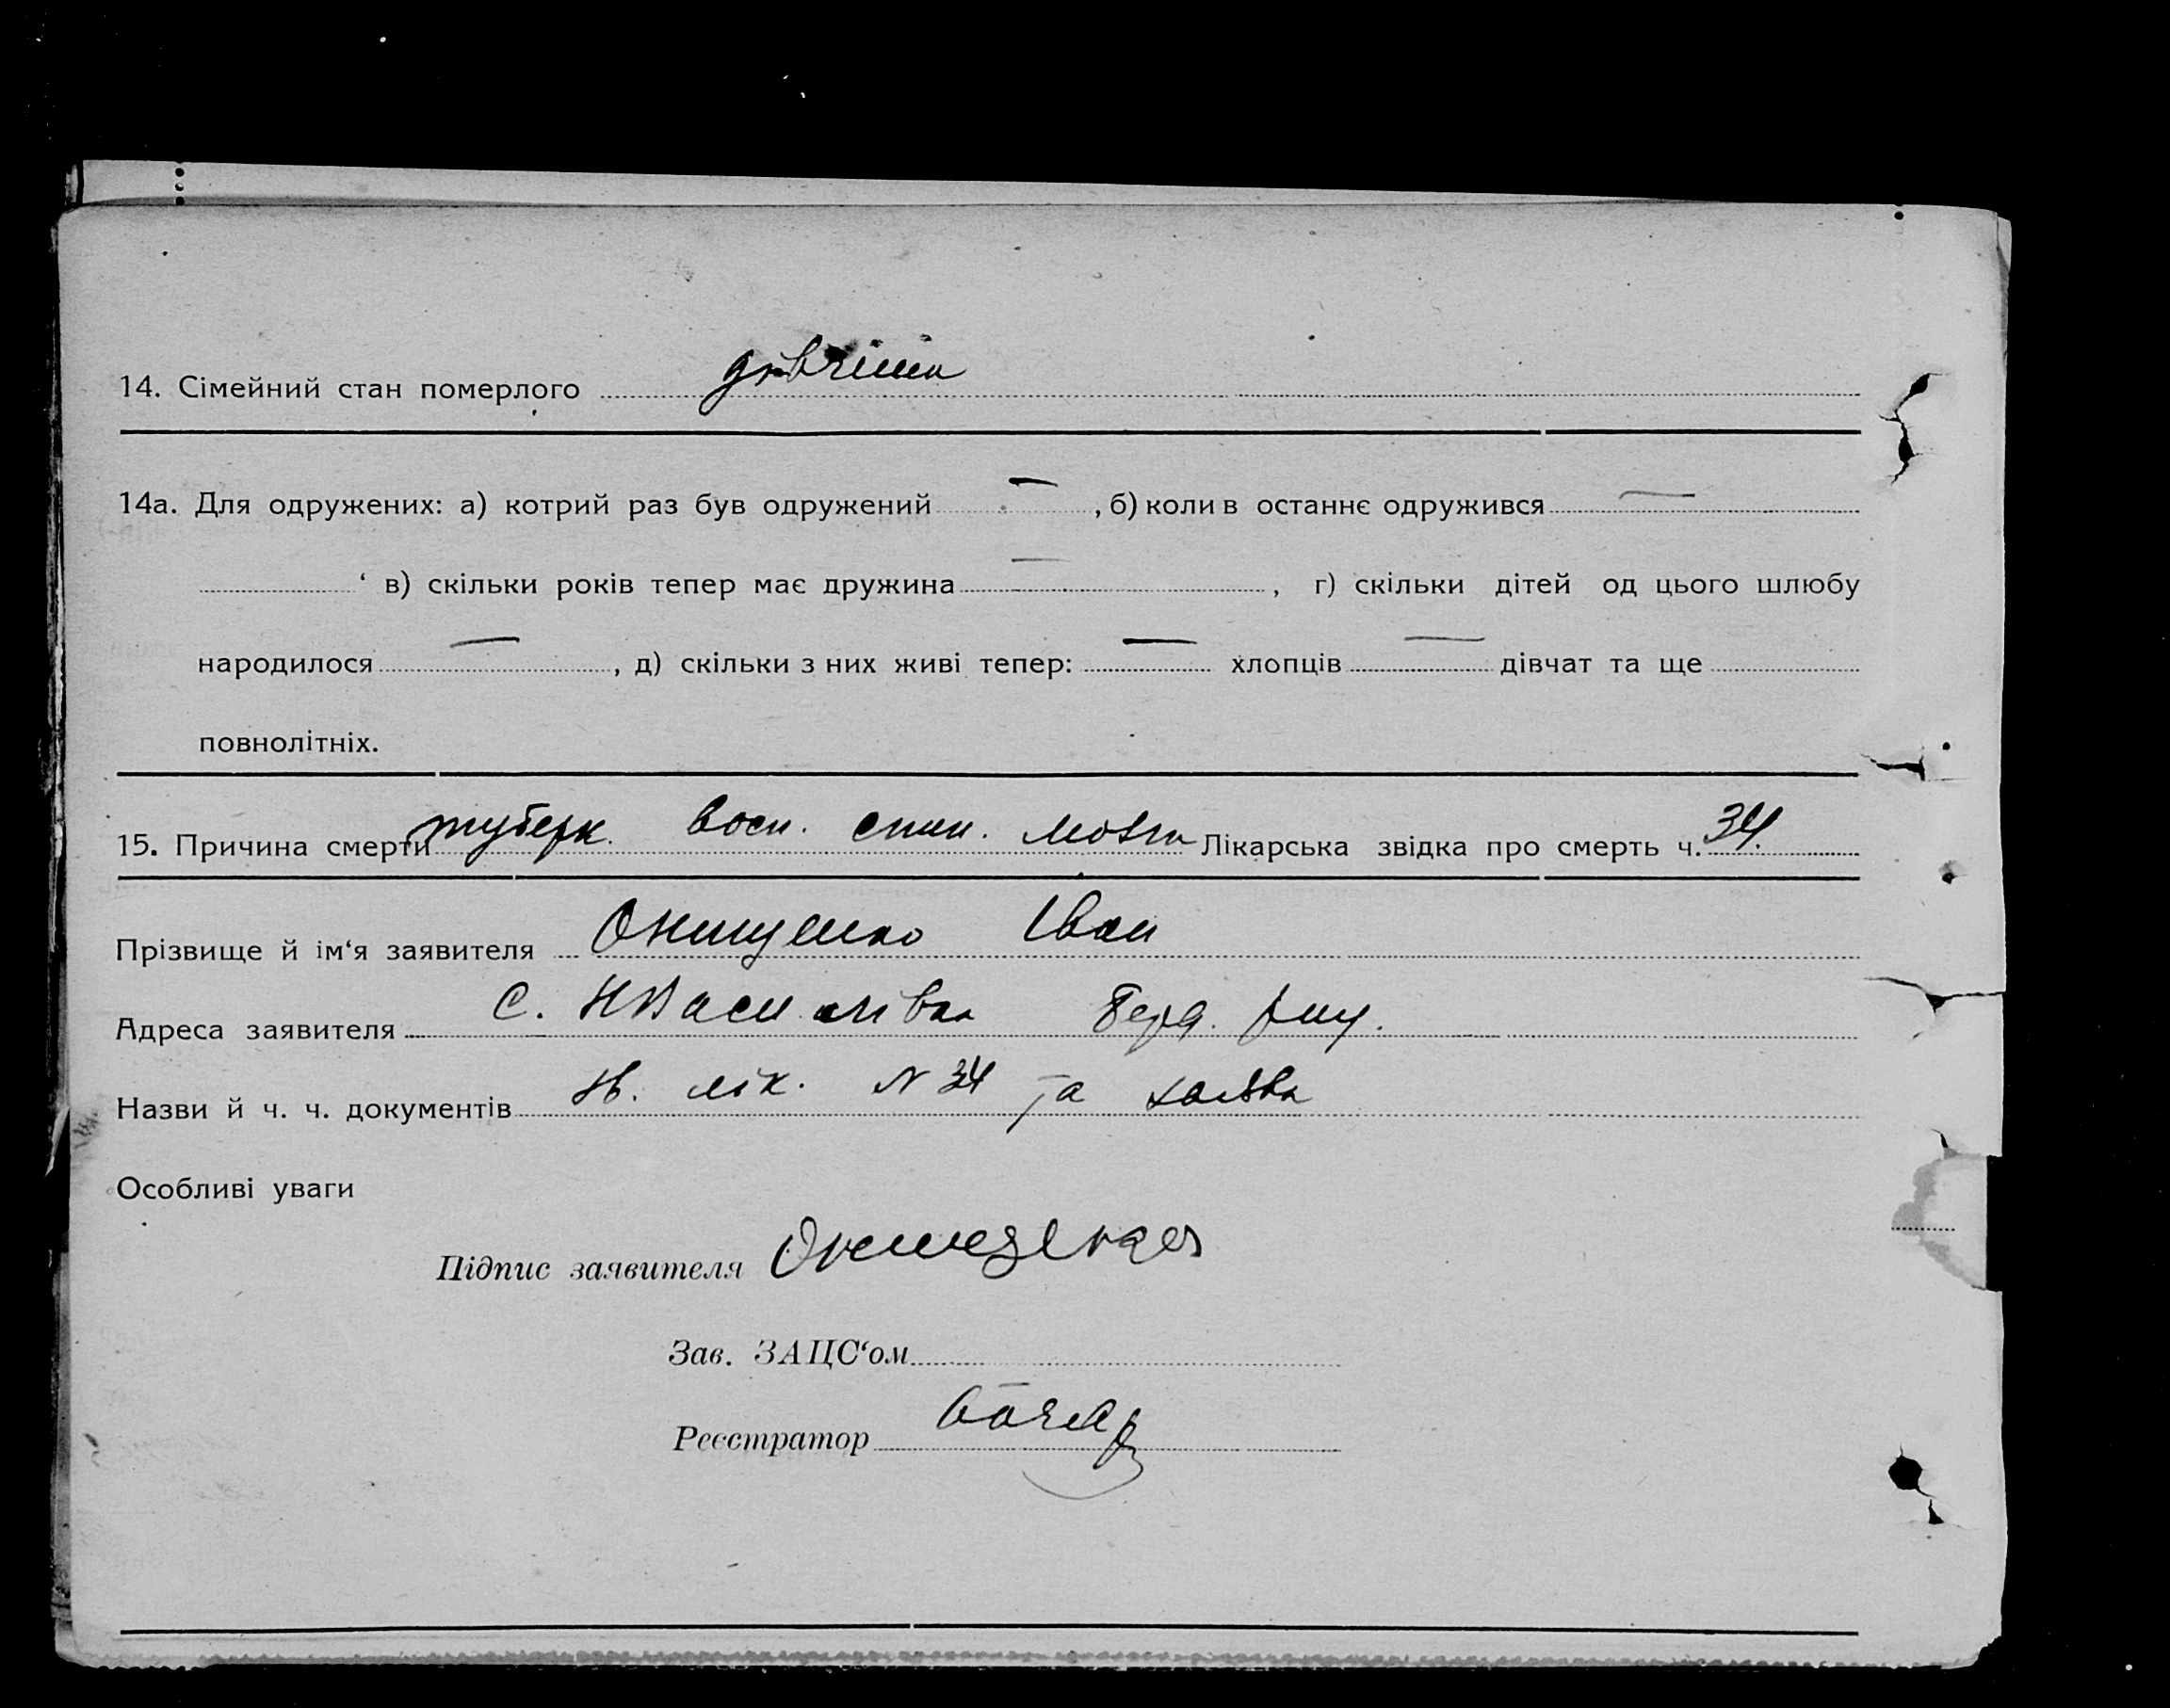 14. Сімейний стан померлого
14а. Для одружених: а) котрий раз був одружений —, б) коли в останнє одружився —
‘ в) скільки років тепер має дружина —, г) скільки дітей од цього шлюбу
народилося —, д) скільки з них живі тепер: — хлопців — дівчат та ще
повнолітніх.
15. Причина смерти туберк. восп. спин. мозга Лікарська звідка про смерть ч. 34.
Прізвище й ім‘я заявителя Онищенко Іван
Адреса заявителя с. НВасилівка Берд.
Назви й ч. ч. документів лік. № 34 та заява
Особливі уваги
Підпис заявителя
Зав. ЗАЦС‘ом
Реєстратор